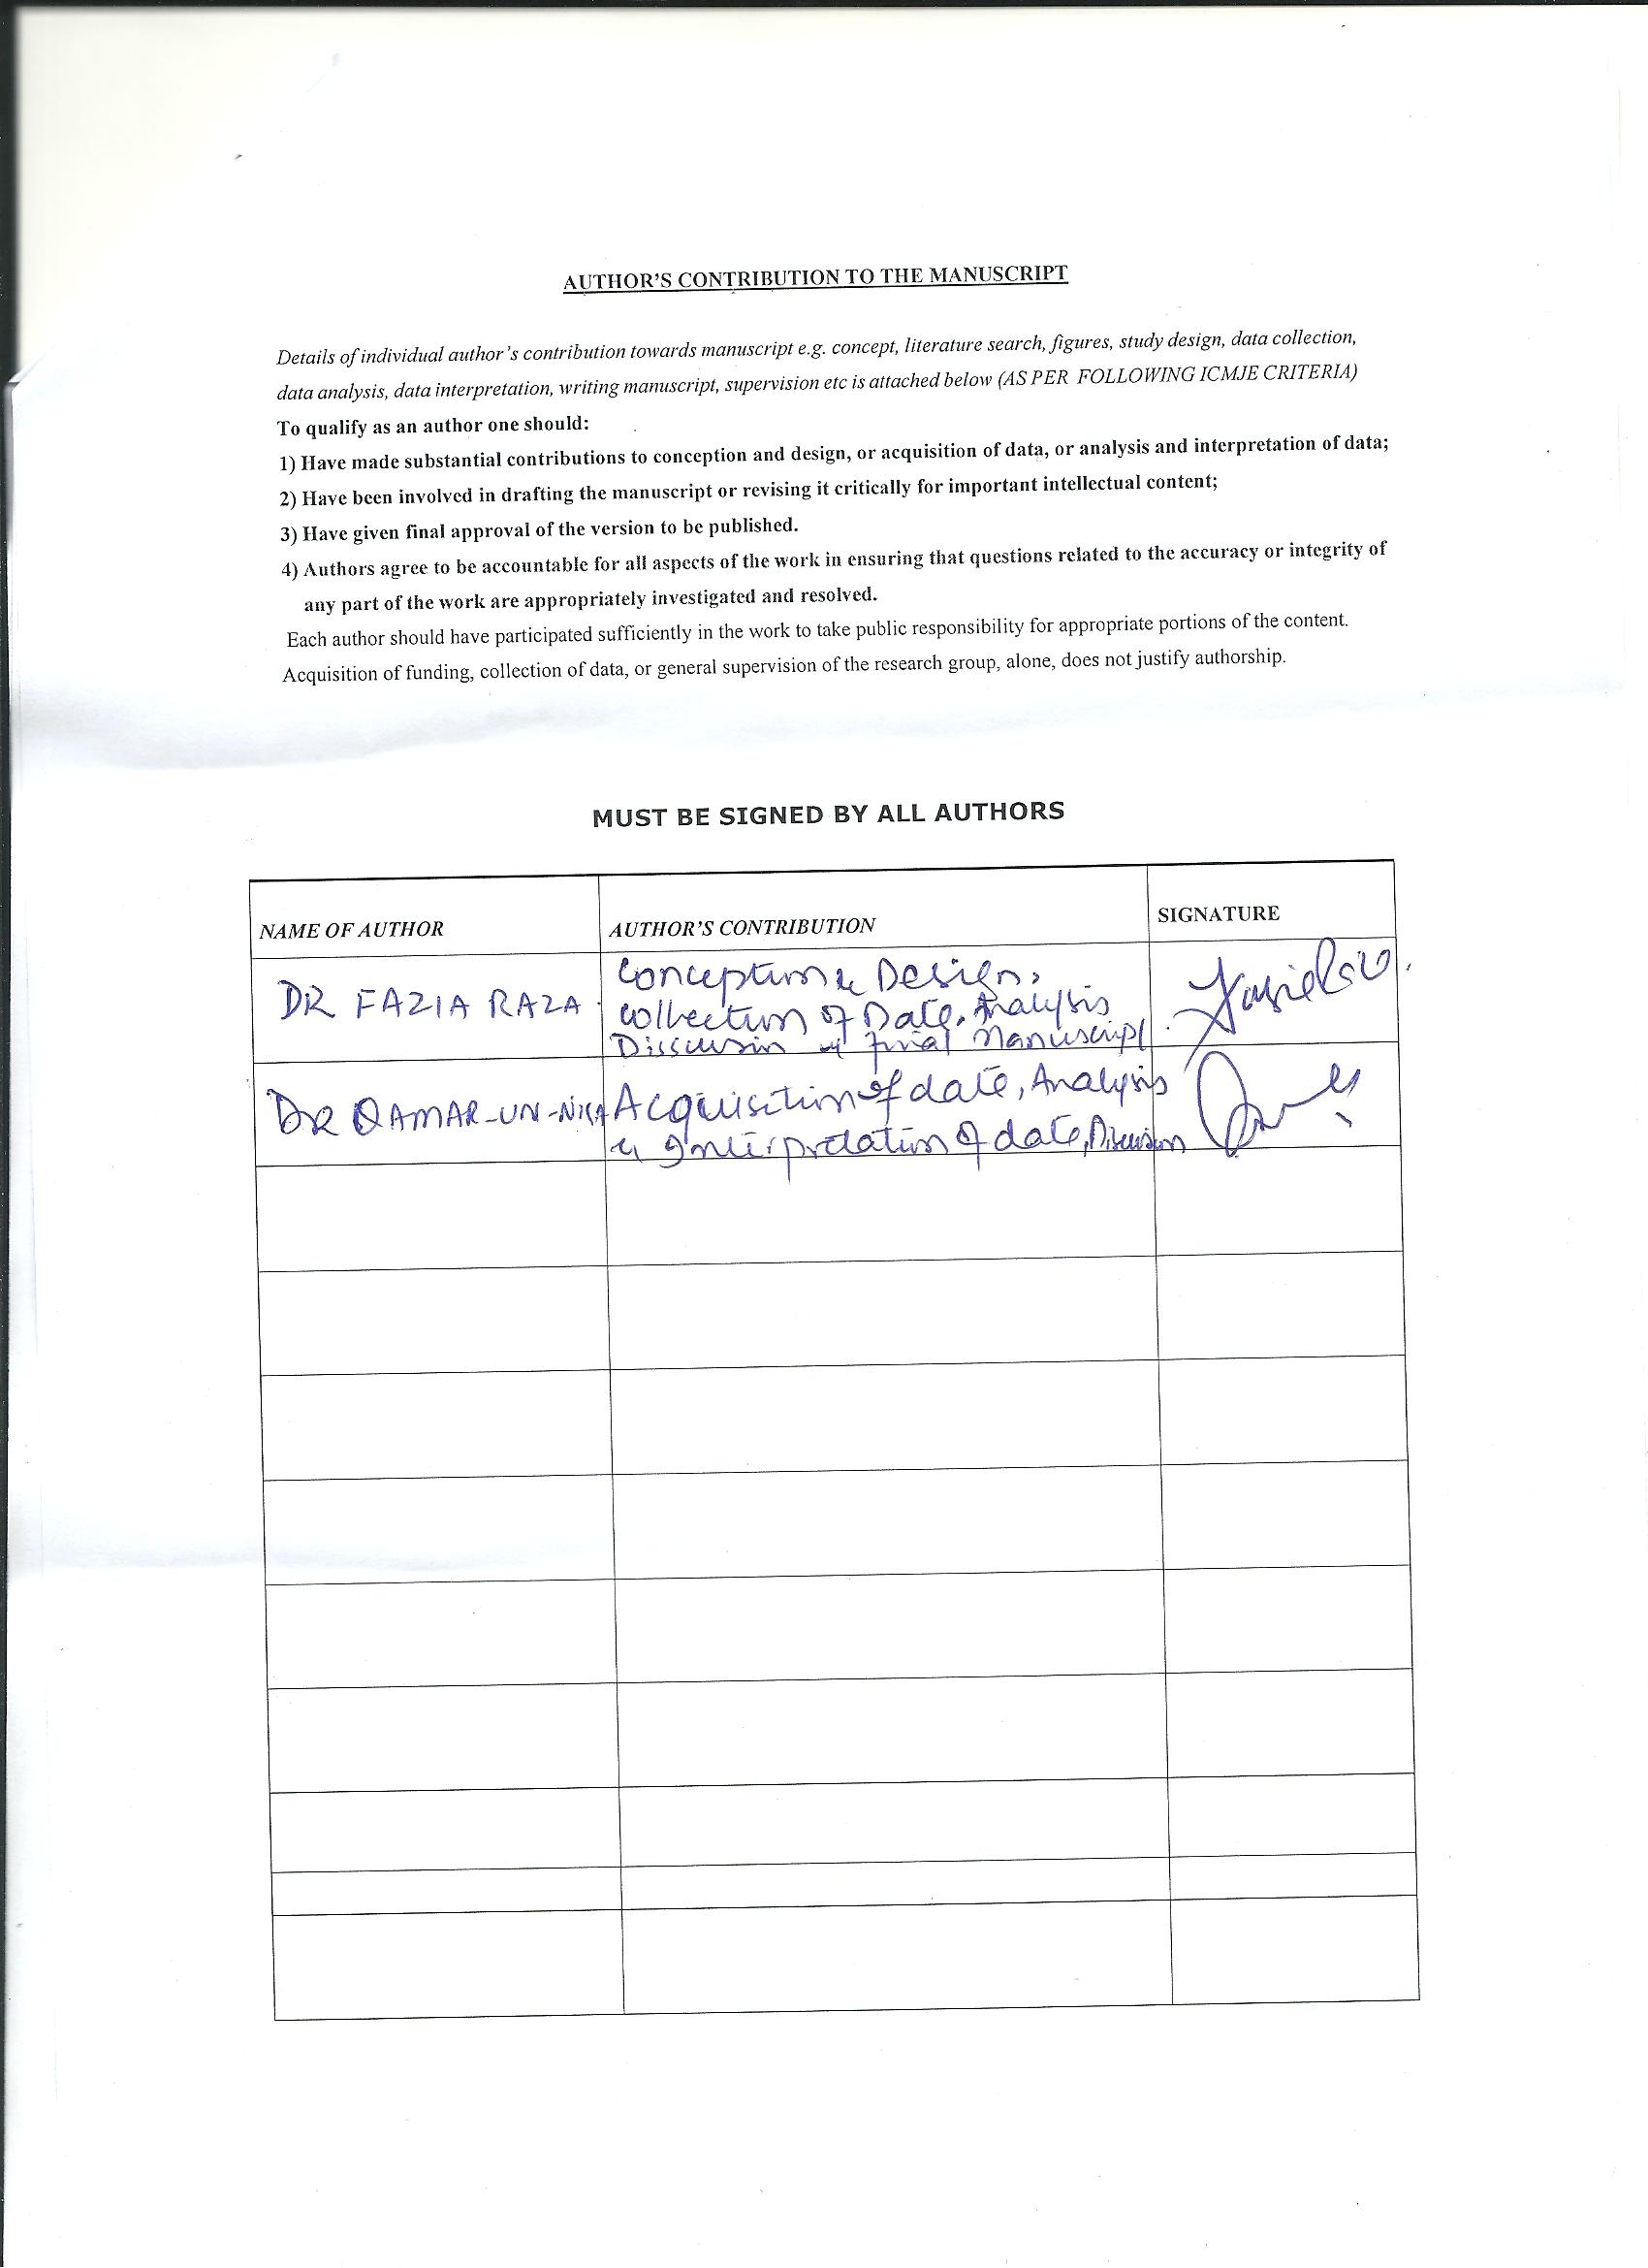 AUTHOR'S CONTRIBUTION TO THE MANUSCRIPT
Details of individual author's contribution towards manuscript e.g. concept, literature search, figures, study design, data collection,
data analysis, data interpretation, writing manuscript, supervision etc is attached below (AS PER FOLLOWING ICMJE CRITERIA)
To qualify as an author one should:
1) Have made substantial contributions to conception and design, or acquisition of data, or analysis and interpretation of data;
2) Have been involved in drafting the manuscript or revising it critically for important intellectual content;
3) Have given final approval of the version to be published.
4) Authors agree to be accountable for all aspects of the work in ensuring that questions related to the accuracy or integrity of
any part of the work are appropriately investigated and resolved.
Each author should have participated sufficiently in the work to take public responsibility for appropriate portions of the content.
Acquisition of funding, collection of data, or general supervision of the research group, alone, does not justify authorship.
MUST BE SIGNED BY ALL AUTHORS
NAME OF AUTHOR
AUTHOR'S CONTRIBUTION
SIGNATURE
DR FAZIA RAZA
Conception & Design,
collection of Data, Analysis
Discussion & final Manuscript
DR QAMAR-UN-NISA
Acquisition of data, Analysis
& Interpretation of data, Discussion